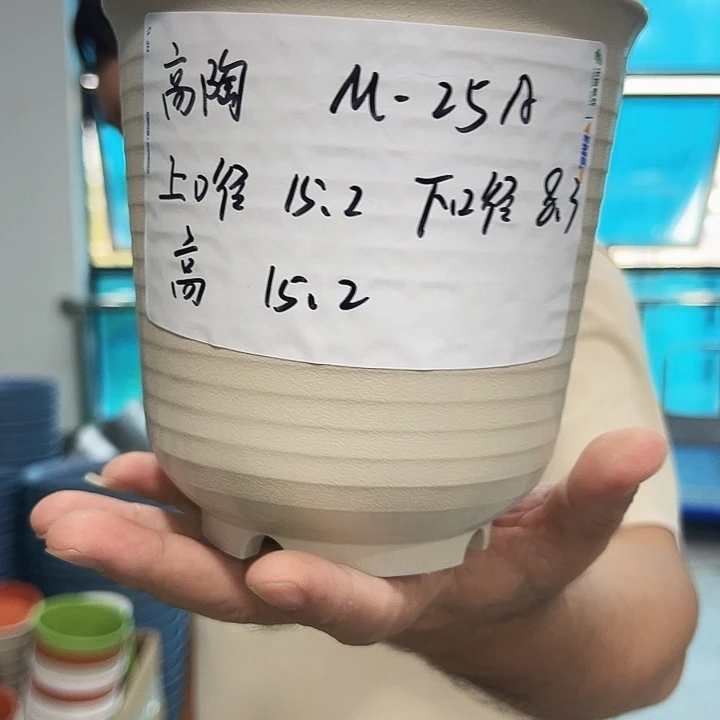 高陶 M-25A
上口径 15.2 下口径 8.3
高 15.2